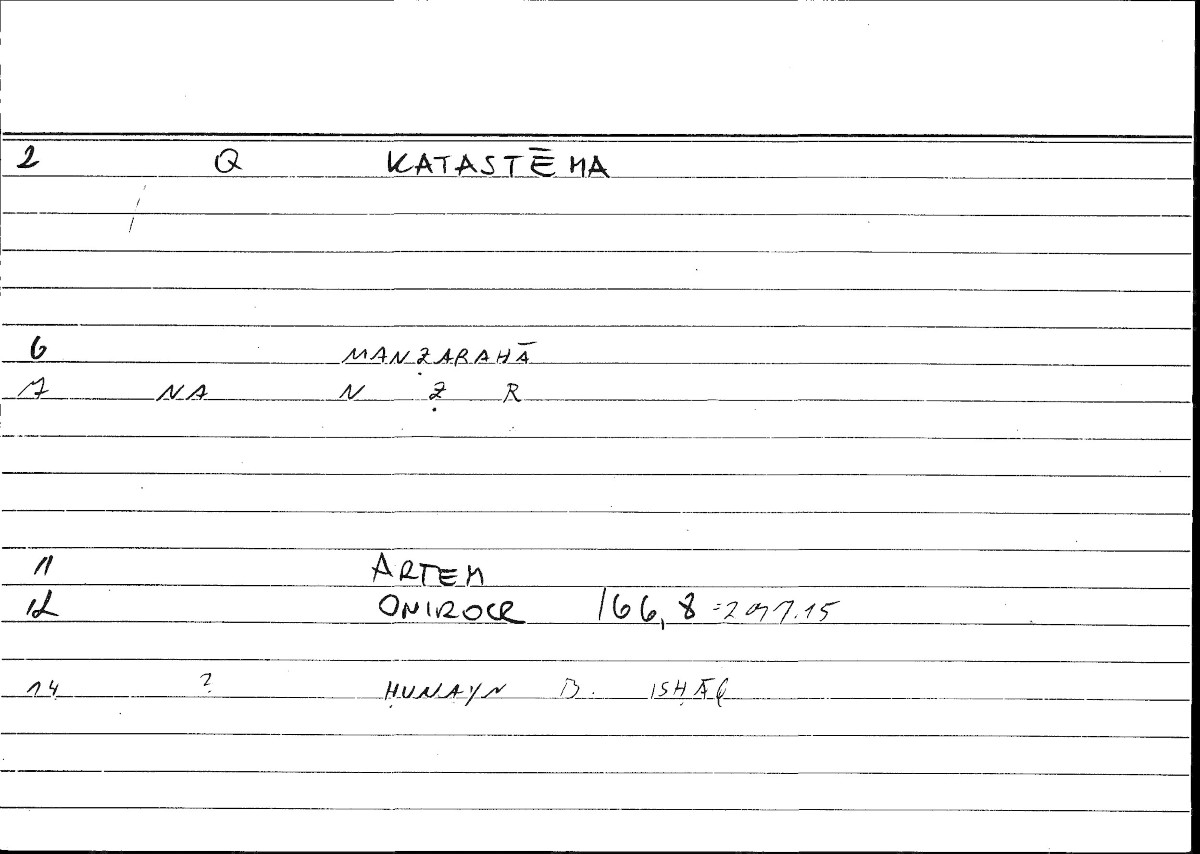 2 Q KATASTĒMA
6 MANẒARAHĀ
7 NA N Ẓ R
11 ARTEM
12 ONIROCR 166,8 = 297.15
14 ? ḤUNAYN B. ISḤĀQ